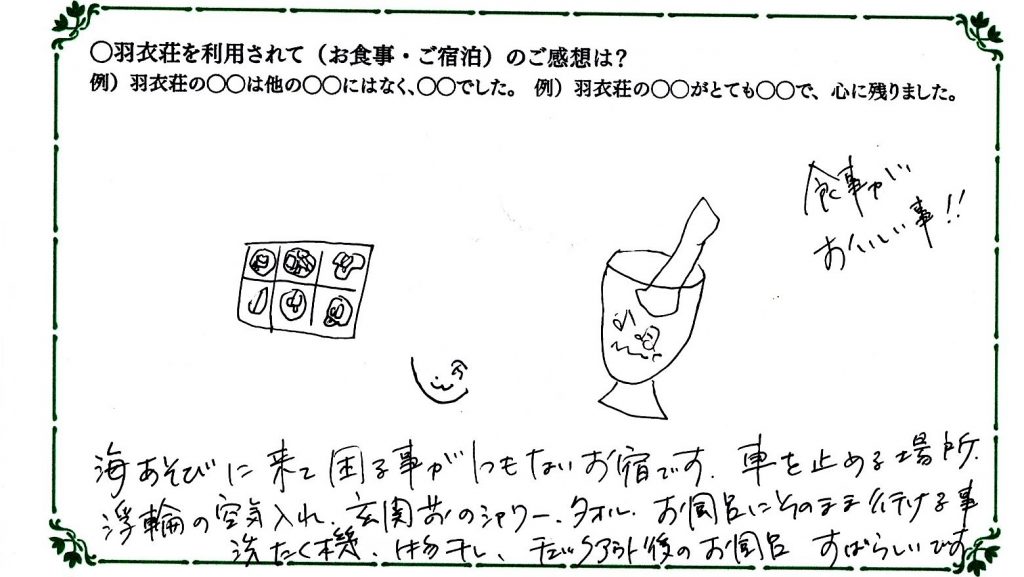 〇羽衣荘を利用されて（お食事・ご宿泊）のご感想は？
例）羽衣荘の〇〇は他の〇〇にはなく、〇〇でした。 例）羽衣荘の〇〇がとても〇〇で、心に残りました。
食事が
おいしい事!!
海あそびに来て困る事が1つもないお宿です. 車を止める場所.
浮輪の空気入れ. 玄関前のシャワー. タオル. お風呂にそのまま行ける事
洗たく機. 物干し、チェックアウト後のお風呂 すばらしいです